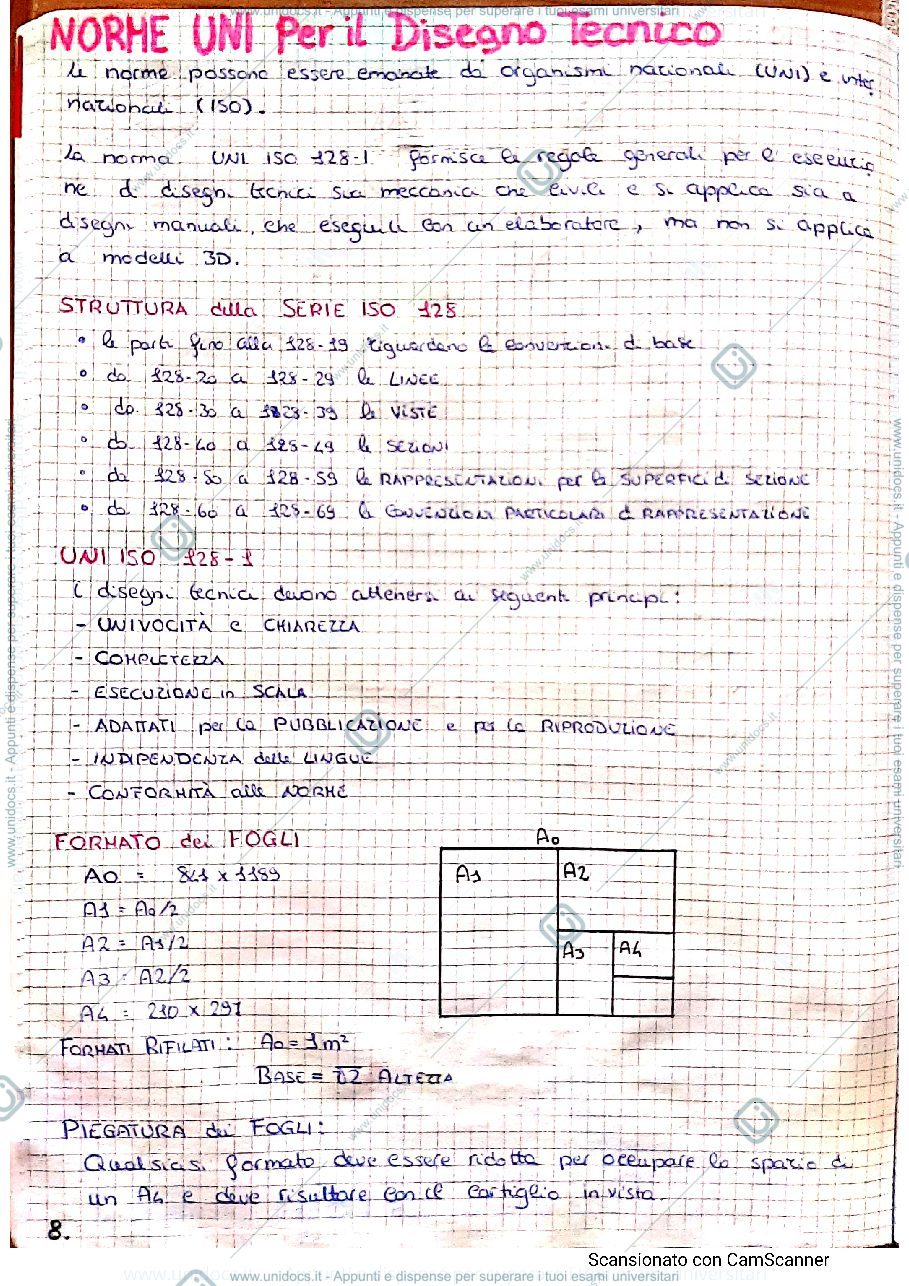 www.unidocs.it - Appunti e dispense per superare i tuoi esami universitari
NORME UNI Per il Disegno Tecnico
le norme possono essere emanate da organismi nazionali (UNI) e inter
nazionali (ISO).
La norma UNI ISO 128-1 fornisce le regole generali per l'esecuzio
ne di disegni tecnici sia meccanici che civili e si applica sia a
disegni manuali, che eseguiti con un elaboratore, ma non si applica
a modelli 3D.
STRUTTURA della SERIE ISO 128
• le parti fino alla 128-19 riguardano le convenzioni di base
• da 128-20 a 128-29 le LINEE
• da 128-30 a 128-39 le VISTE
• da 128-40 a 128-49 le SEZIONI
• da 128-50 a 128-59 le RAPPRESENTAZIONI per le SUPERFICI di SEZIONE
• da 128-60 a 128-69 le CONVENZIONI PARTICOLARI di RAPPRESENTAZIONE
UNI ISO 128-1
i disegni tecnici devono attenersi ai seguenti principi:
- UNIVOCITÀ e CHIAREZZA
- COMPLETEZZA
- ESECUZIONE in SCALA
- ADATTATI per la PUBBLICAZIONE e per la RIPRODUZIONE
- INDIPENDENZA delle LINGUE
- CONFORMITÀ alle NORME
FORMATO dei FOGLI
A0 = 841 x 1189
A1 = A0/2
A2 = A1/2
A3 = A2/2
A4 = 210 x 297
A0
A1
A2
A3
A4
FORMATI RIFILATI: A0 = 1 m²
BASE = √2 ALTEZZA
PIEGATURA dei FOGLI:
Qualsiasi formato deve essere ridotto per occupare lo spazio di
un A4 e deve risultare con il cartiglio in vista.
8.
Scansionato con CamScanner
www.unidocs.it - Appunti e dispense per superare i tuoi esami universitari